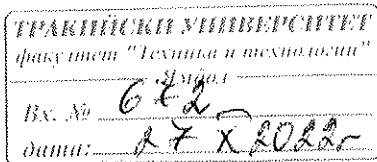 ТРАКИЙСКИ УНИВЕРСИТЕТ
факултет "Техника и технологии"
Ямбол
Вх. № 672
дата: 27 X 2022г